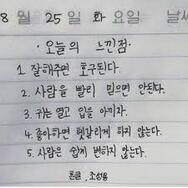 8 월 25 일 화 요일 날씨
· 오늘의 느낀점 ·
1. 잘해주면 호구된다.
2. 사람을 빨리 믿으면 안된다.
3. 귀는 열고 입을 아끼자.
4. 좋아하면 헷갈리게 하지 않는다.
5. 사람은 쉽게 변하지 않는다.